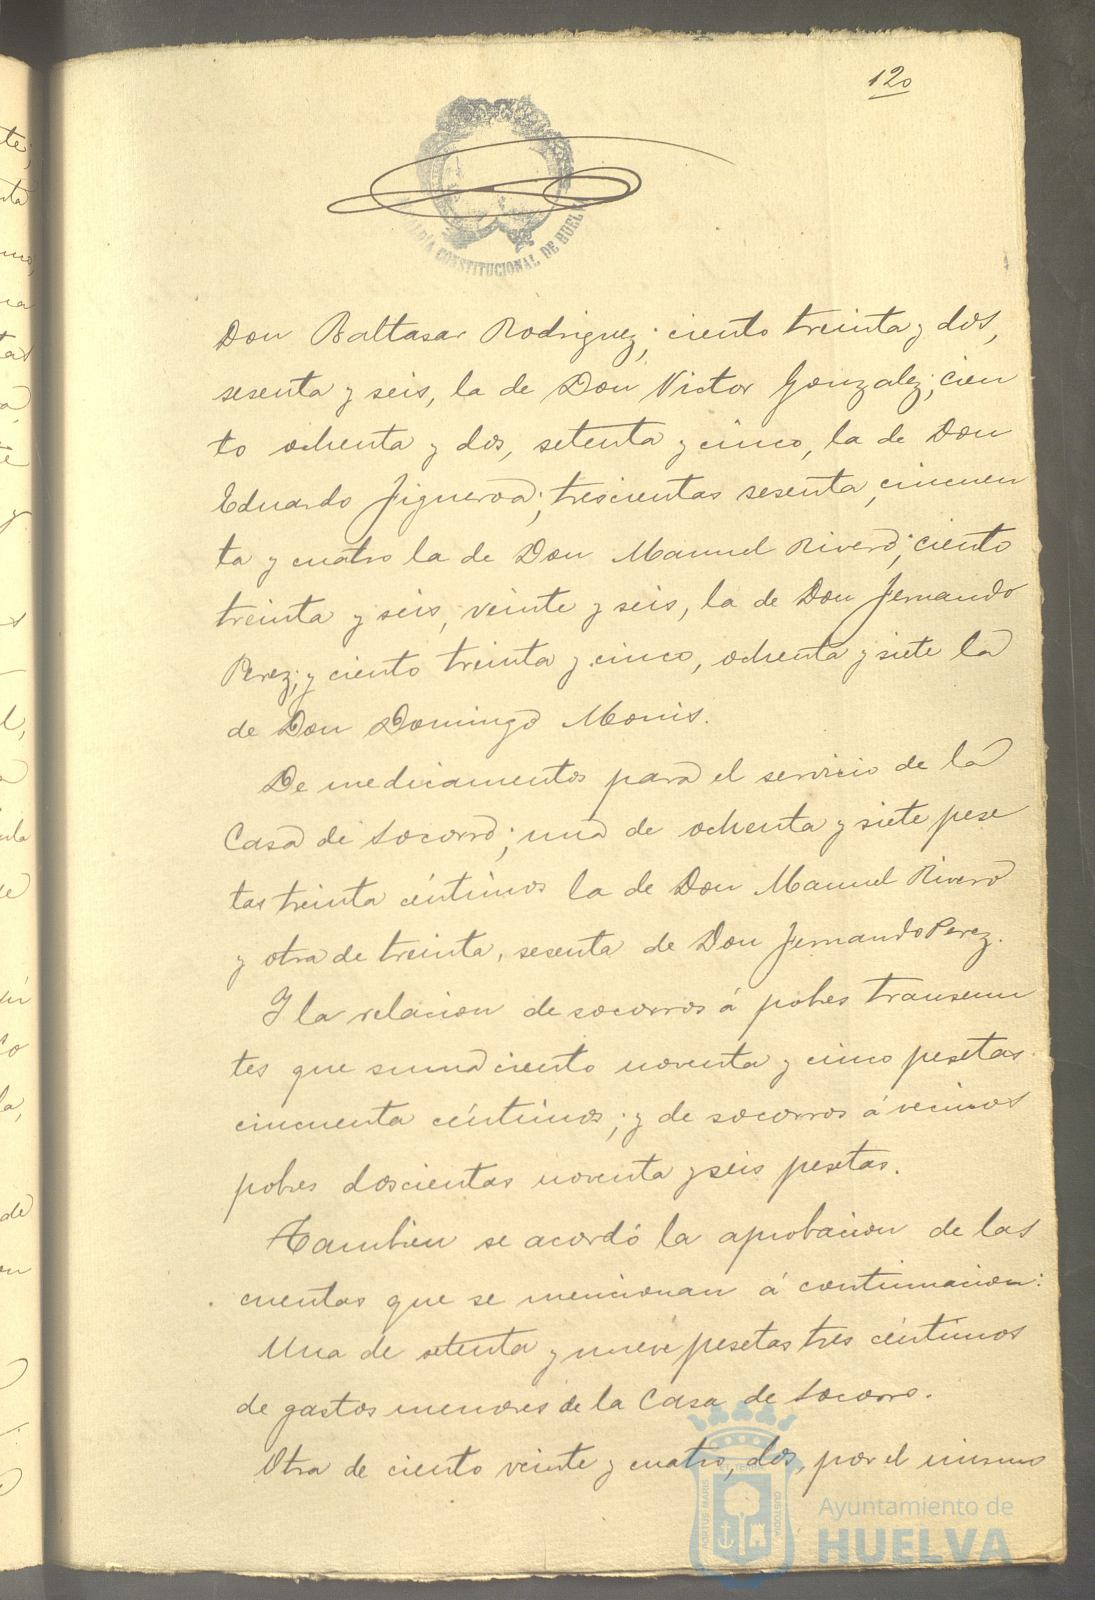 120
ALCALDÍA CONSTITUCIONAL DE HUELVA
Don Baltasar Rodriguez; ciento treinta y dos,
sesenta y seis, la de Don Victor Gonzalez; cien
to ochenta y dos, setenta y cinco, la de Don
Eduardo Figueroa; trescientas sesenta, cincuen
ta y cuatro la de Don Manuel Rivero; ciento
treinta y seis, veinte y seis, la de Don Fernando
Perez; y ciento treinta y cinco, ochenta y siete la
de Don Domingo Monis.
De medicamentos para el servicio de la
Casa de Socorro; una de ochenta y siete pese
tas treinta céntimos la de Don Manuel Rivero
y otra de treinta, sesenta de Don Fernando Perez.
Y la relacion de socorros á pobres transeun
tes que suma ciento noventa y cinco pesetas
cincuenta céntimos; y de socorros á vecinos
pobres doscientas noventa y seis pesetas.
Tambien se acordó la aprobacion de las
cuentas que se mencionan á continuacion:
Una de setenta y nueve pesetas tres céntimos
de gastos menores de la Casa de Socorro.
Otra de ciento veinte y cuatro, dos, por el mismo
PORTUS MARIS ET TERRAE CUSTODIA
Ayuntamiento de
HUELVA